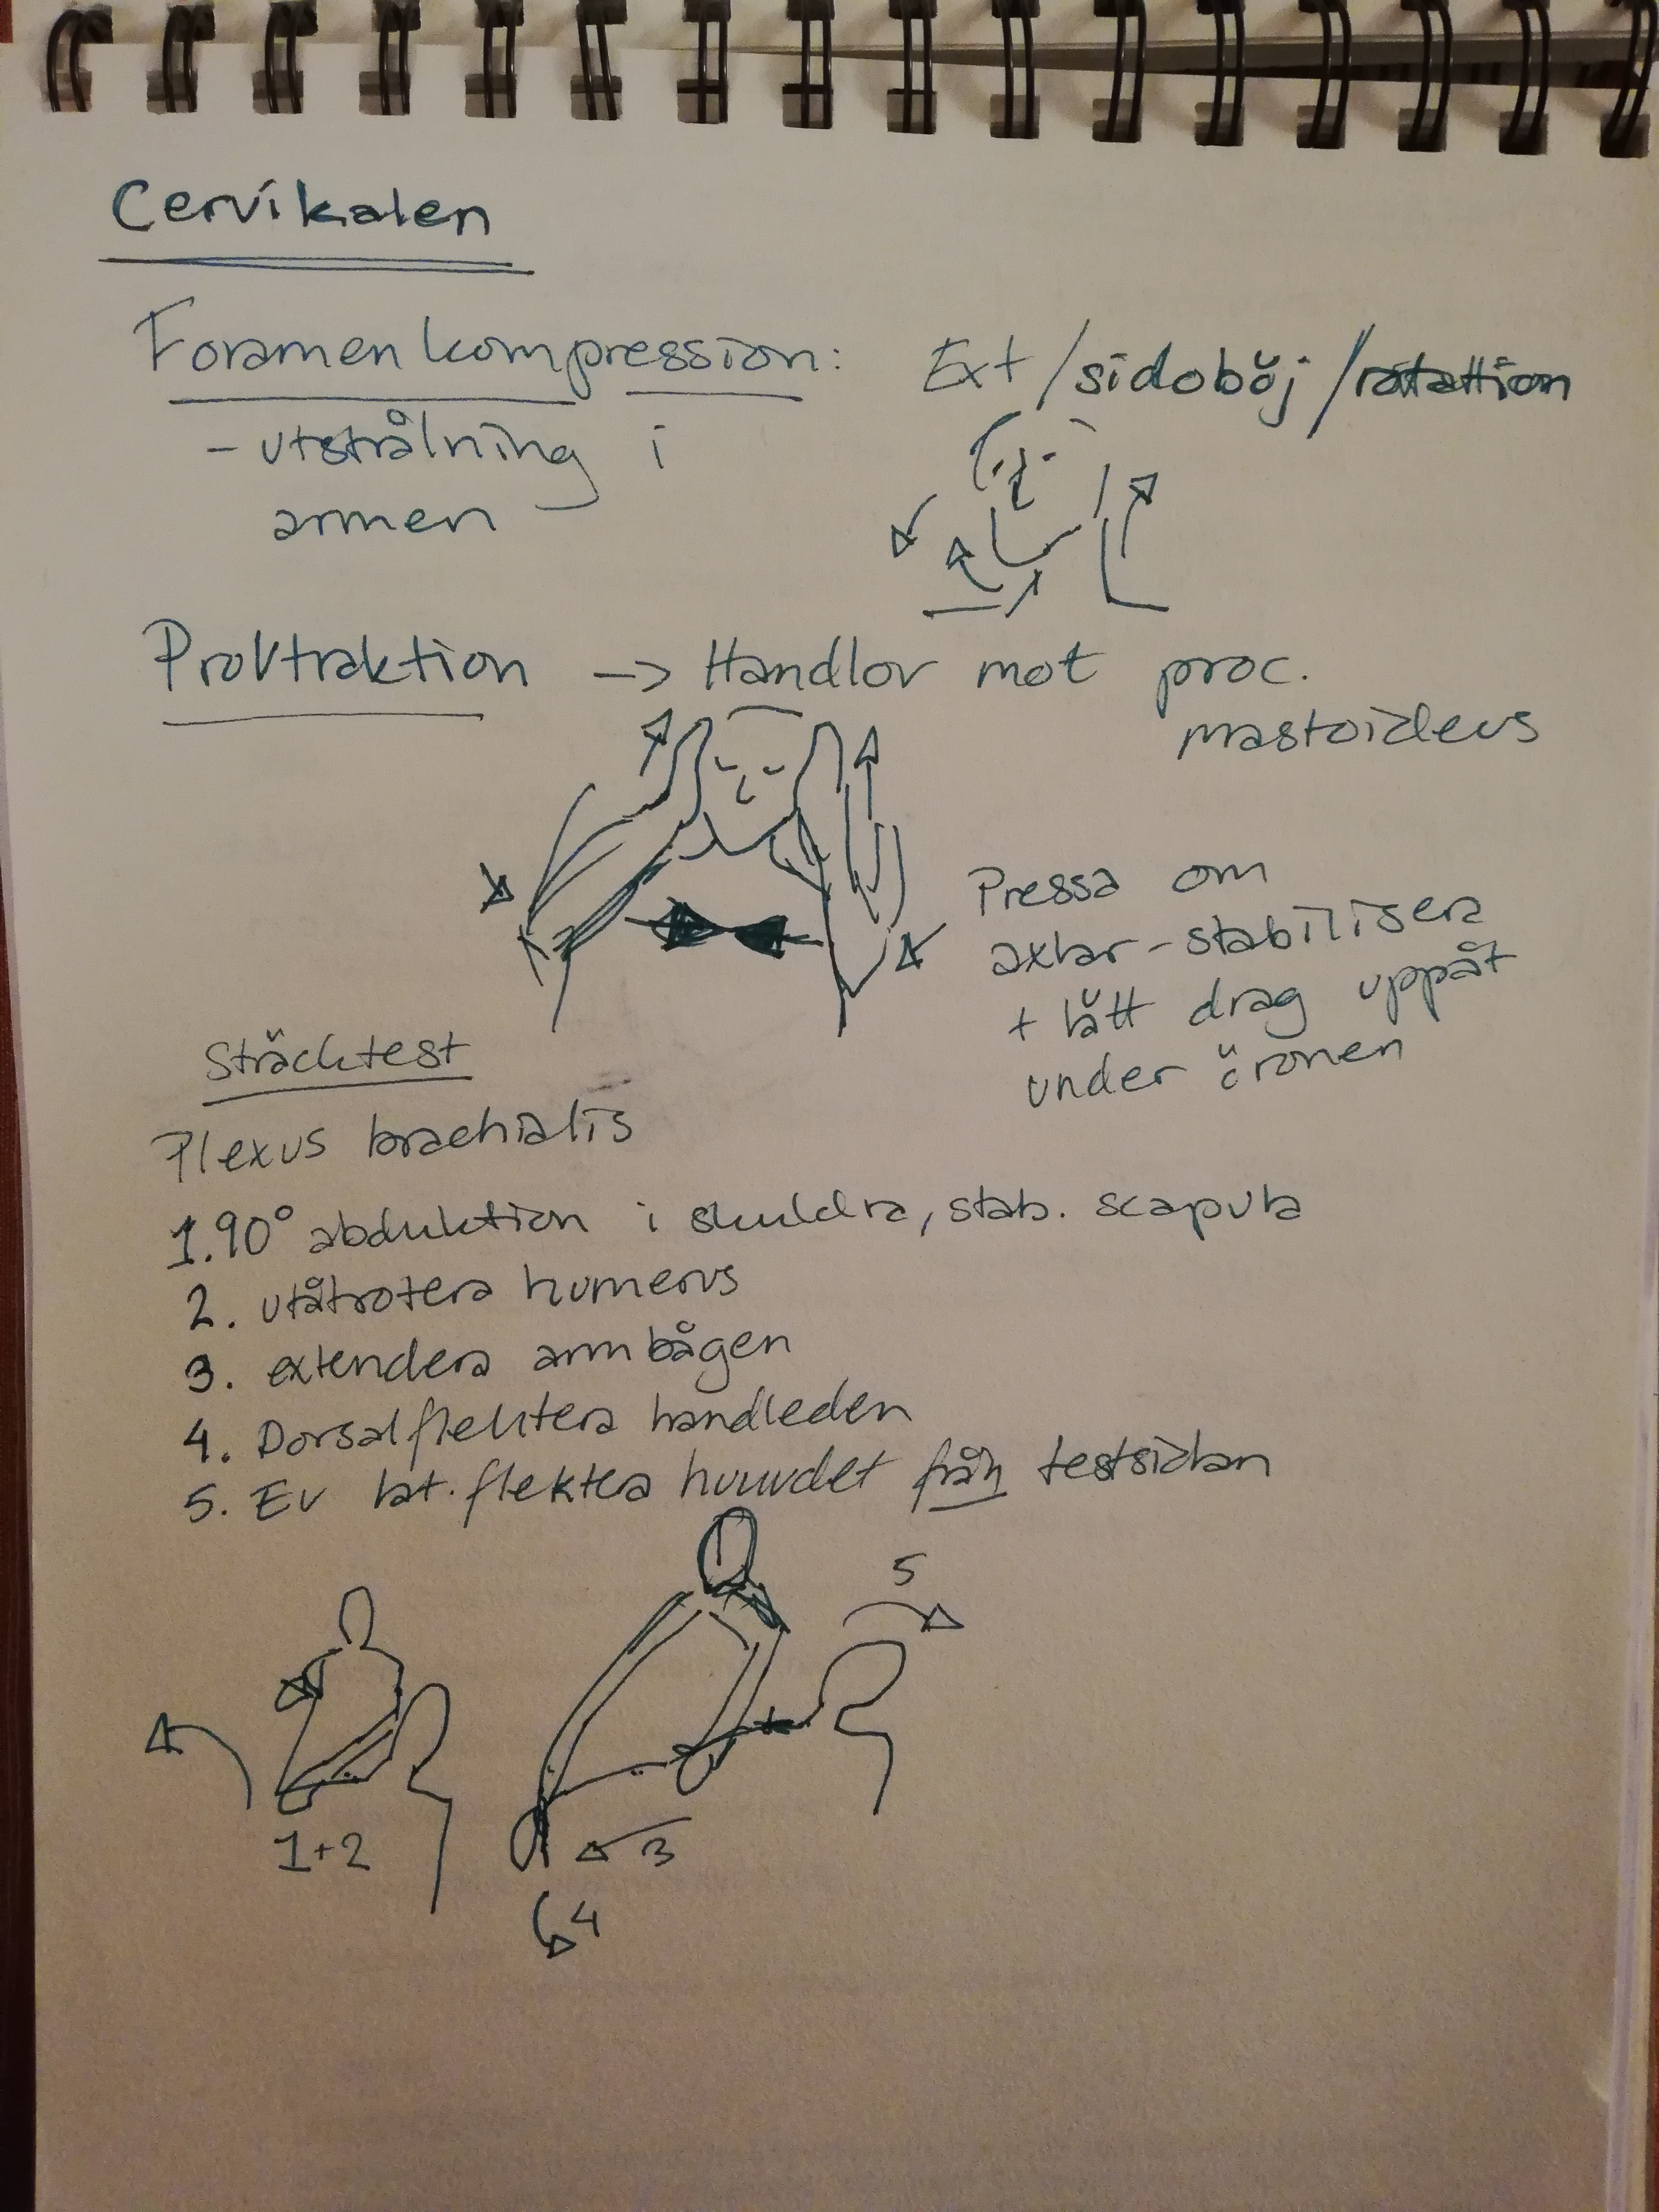 Cervikalen
Foramenkompression: Ext/sidoböj/rotattion
- utstrålning i
armen
Provtraktion -> Handlov mot proc.
mastoideus
Pressa om
axlar-stabilisera
+ lätt drag uppåt
under öronen
Sträcktest
Plexus brachialis
1. 90° abduktion i skuldra, stab. scapula
2. utåtrotera humerus
3. extendera armbågen
4. Dorsalflektera handleden
5. Ev lat. flektera huvudet från testsidan
5
1+2
3
4